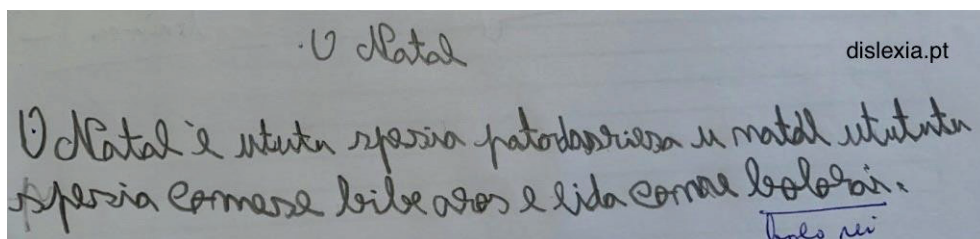 O Natal
dislexia.pt
O Natal è ututu spesia patodasriesa u natal utututu
spesia comese bibe aros e lida comre bolorai.
bolo rei